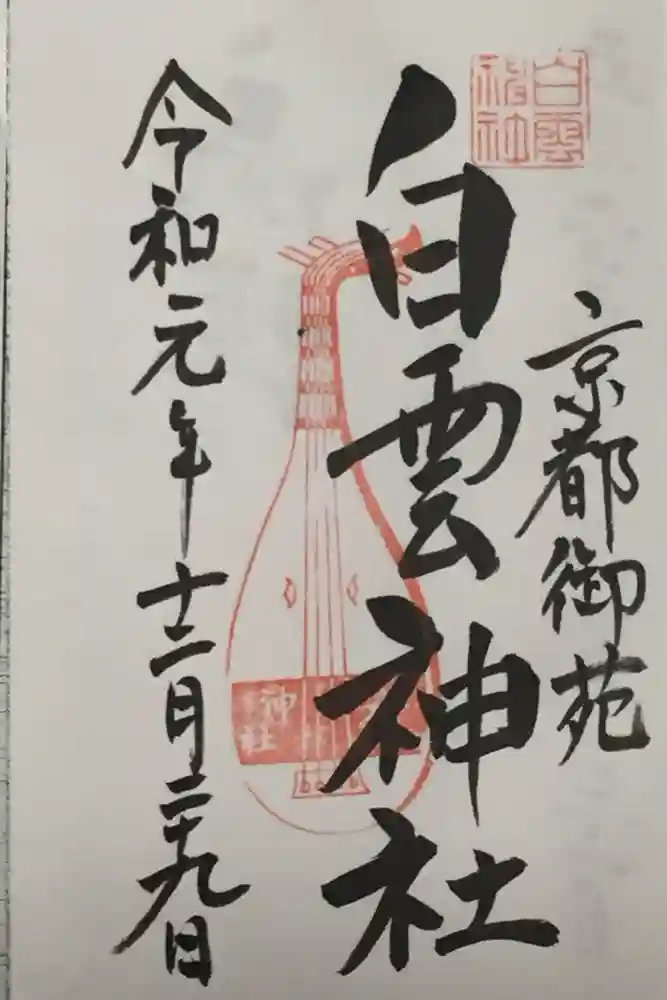 京都御苑
白雲神社
白雲神社
令和元年十二月二十九日
神社